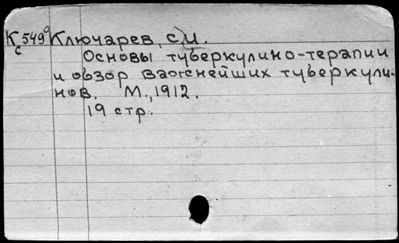 К 549⁰ Ключарев, С.И.
с
Основы туберкулино-терапии
и обзор важнейших туберкули-
нов. М., 1912.
19 стр.